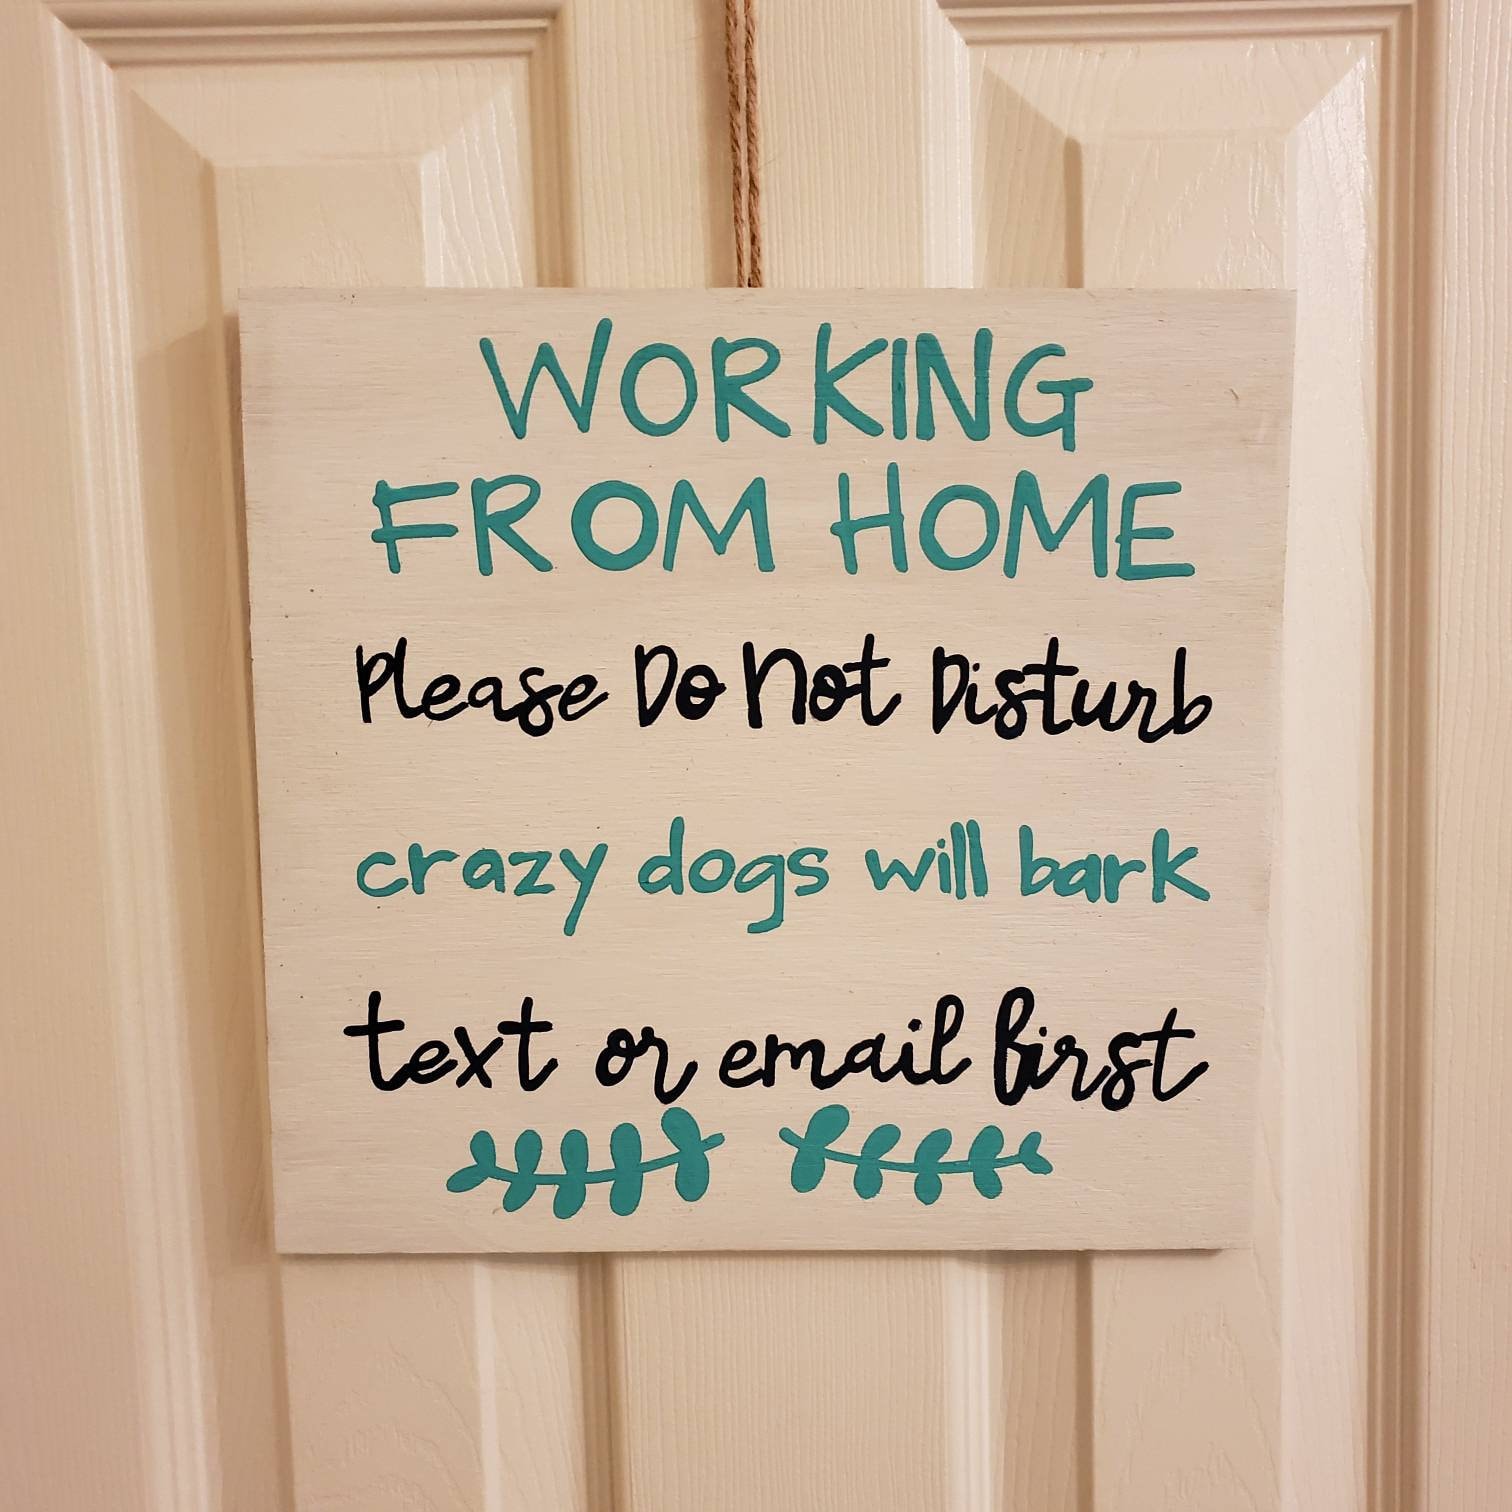 WORKING
FROM HOME
Please Do Not Disturb
crazy dogs will bark
text or email first